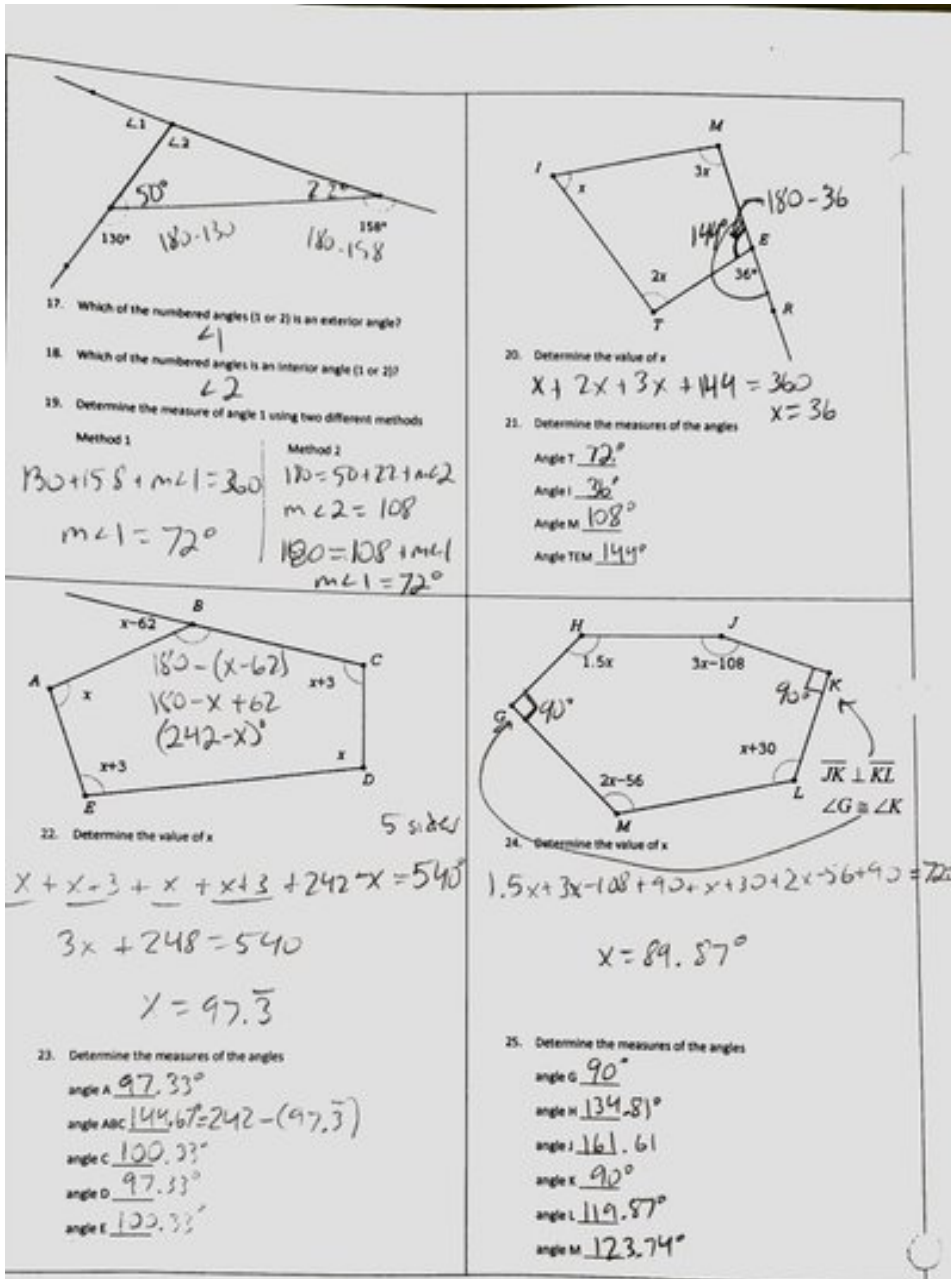 ∠1
∠2
50°
22°
130°
180-130
158°
180-158
17. Which of the numbered angles (1 or 2) is an exterior angle?
∠1
18. Which of the numbered angles is an interior angle (1 or 2)?
∠2
19. Determine the measure of angle 1 using two different methods
Method 1
130+158+m∠1=360
m∠1=72°
Method 2
180=50+22+m∠2
m∠2=108
180=108+m∠1
m∠1=72°
M
I
3x
x
180-36
144°
E
2x
36°
R
T
20. Determine the value of x
x+2x+3x+144=360
x=36
21. Determine the measures of the angles
Angle T 72°
Angle I 36°
Angle M 108°
Angle TEM 144°
B
x-62
180-(x-62)
C
A
x
180-x+62
x+3
(242-x)°
x+3
x
D
E
5 sides
22. Determine the value of x
x+x+3+x+x+3+242-x=540°
3x+248=540
x=97.3̅
23. Determine the measures of the angles
angle A 97.33°
angle ABC 144.67°=242-(97.3̅)
angle C 100.33°
angle D 97.33°
angle E 100.33°
H
J
1.5x
3x-108
90°
K
G
90°
x+30
2x-56
L
M
JK ⊥ KL
∠G ≅ ∠K
24. Determine the value of x
1.5x+3x-108+90+x+30+2x-56+90=720
x=89.87°
25. Determine the measures of the angles
angle G 90°
angle H 134.81°
angle J 161.61
angle K 90°
angle L 119.87°
angle M 123.74°